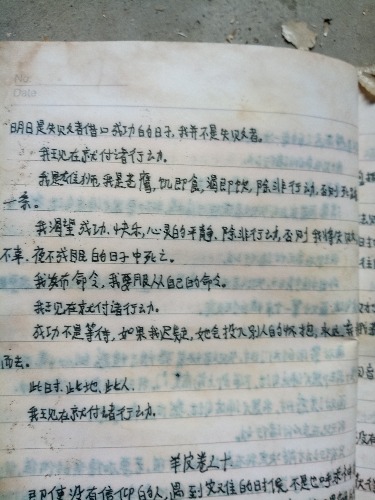 No:
Date
明日是失败者借口成功的日子,我并不是失败者。
我现在就付诸行动。
我是雄狮,我是老鹰,饥即食,渴即饮,除非行动,否则死路
一条。
我渴望成功、快乐,心灵的平静,除非行动,否则我将在失败
不幸、夜不成眠的日子中死亡。
我发布命令,我要服从自己的命令。
我现在就付诸行动。
成功不是等待,如果我迟疑,她会投入别人的怀抱,永远弃
而去。
此时、此地、此人.
我现在就付诸行动.
羊皮卷之十
即使没有信仰的人,遇到灾难的时候,不是也呼求